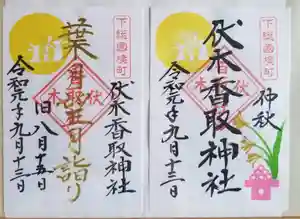 下総國境町
伏木香取神社
葉月
月詣り
旧八月十五日
令和元年九月十三日
下総國境町
仲秋
伏木香取神社
令和元年九月十三日